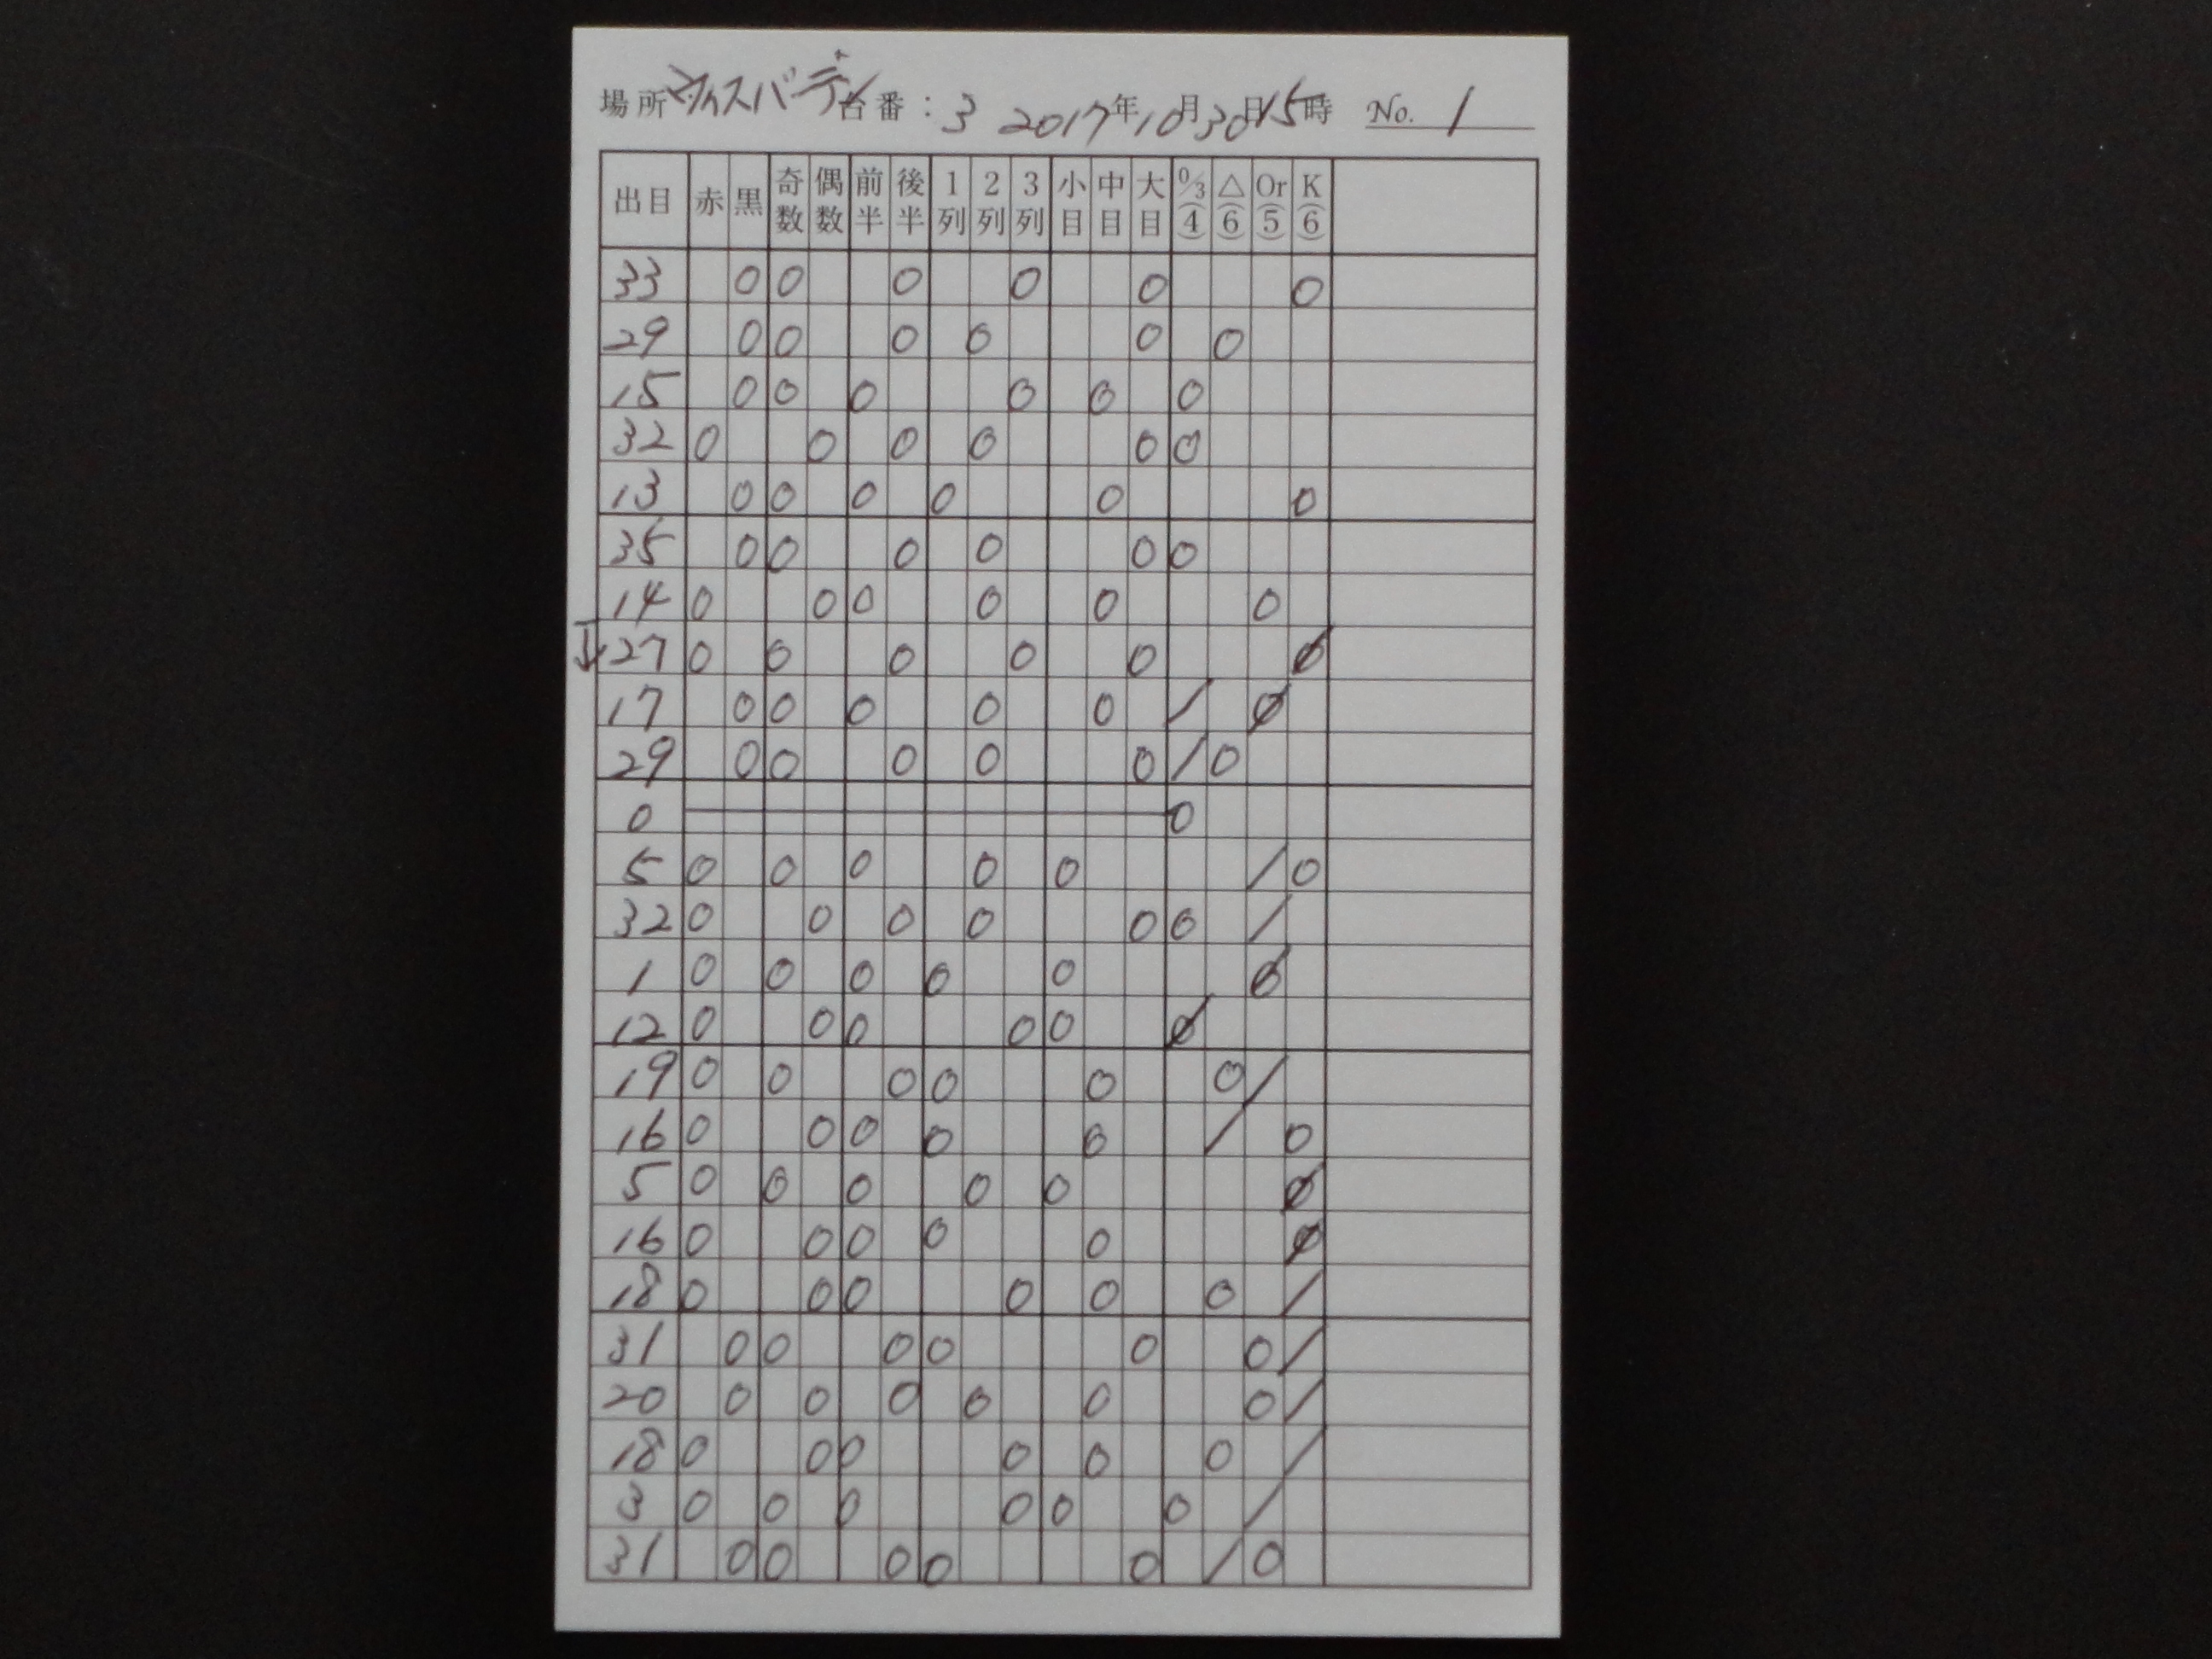 場所 台番：3 2017年10月30日15時 No. 1
出目 赤 黒 奇数 偶数 前半 後半 1列 2列 3列 小目 中目 大目 0/3(4) △(6) Or(5) K(6)
33 0 0 0 0 0 0
29 0 0 0 0 0 0
15 0 0 0 0 0 0
32 0 0 0 0 0 0
13 0 0 0 0 0 0
35 0 0 0 0 0 0
14 0 0 0 0 0 0
↓ 27 0 0 0 0 0 0/
17 0 0 0 0 0 / 0/
29 0 0 0 0 0 / 0
0 0
5 0 0 0 0 0 / 0
32 0 0 0 0 0 0 /
1 0 0 0 0 0 0/
12 0 0 0 0 0 0/
19 0 0 0 0 0 0 /
16 0 0 0 0 0 / 0
5 0 0 0 0 0 0/
16 0 0 0 0 0 0/
18 0 0 0 0 0 0 /
31 0 0 0 0 0 0 /
20 0 0 0 0 0 0 /
18 0 0 0 0 0 0 /
3 0 0 0 0 0 0 /
31 0 0 0 0 0 / 0